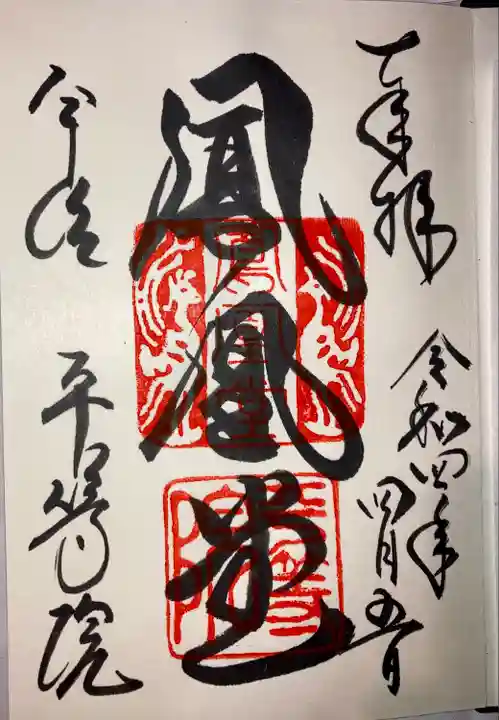 奉拝
令和四年
四月五日
鳳凰堂
鳳凰堂
宇治 平等院